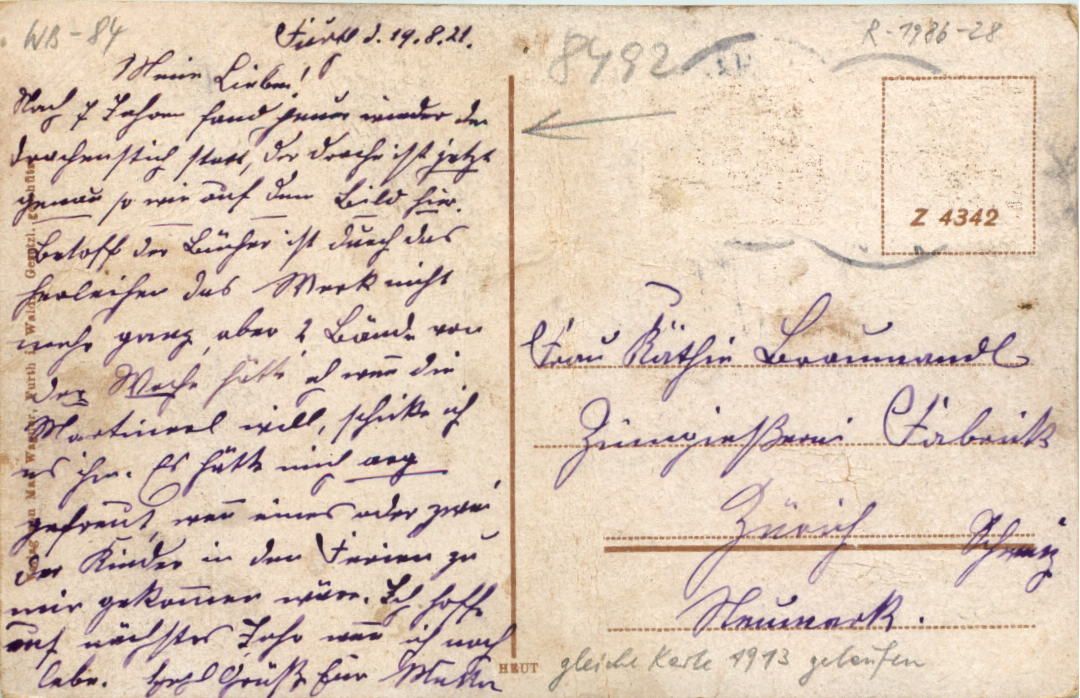 WB-84
R-1986-28
8492
Z 4342
Furth d. 19.8.21.
Meine Lieben!
Nach 7 Jahren fand heuer wieder der
Drachenstich statt, der Drache ist jetzt
genau so wie auf dem Bild hier.
Betreff der Bücher ist durch das
herleihen das Werk nicht
mehr ganz, aber 2 Bände von
der Woche hätte ich wenn die
will, schicke ich
es ihm. Es hätte mich arg
gefreut, wenn eines oder zwei
der Kinder in den Ferien zu
mir gekommen wäre. Ich hoffe
auf nächstes Jahr wenn ich noch
lebe. Herzl Grüße Eure Mutter
Frau Käthie Braumandl
Fabrick
Zürich
Schweiz
Neumark.
gleiche Karte 1913 gelaufen
HEUT
Wagner, Furth i. Wald.